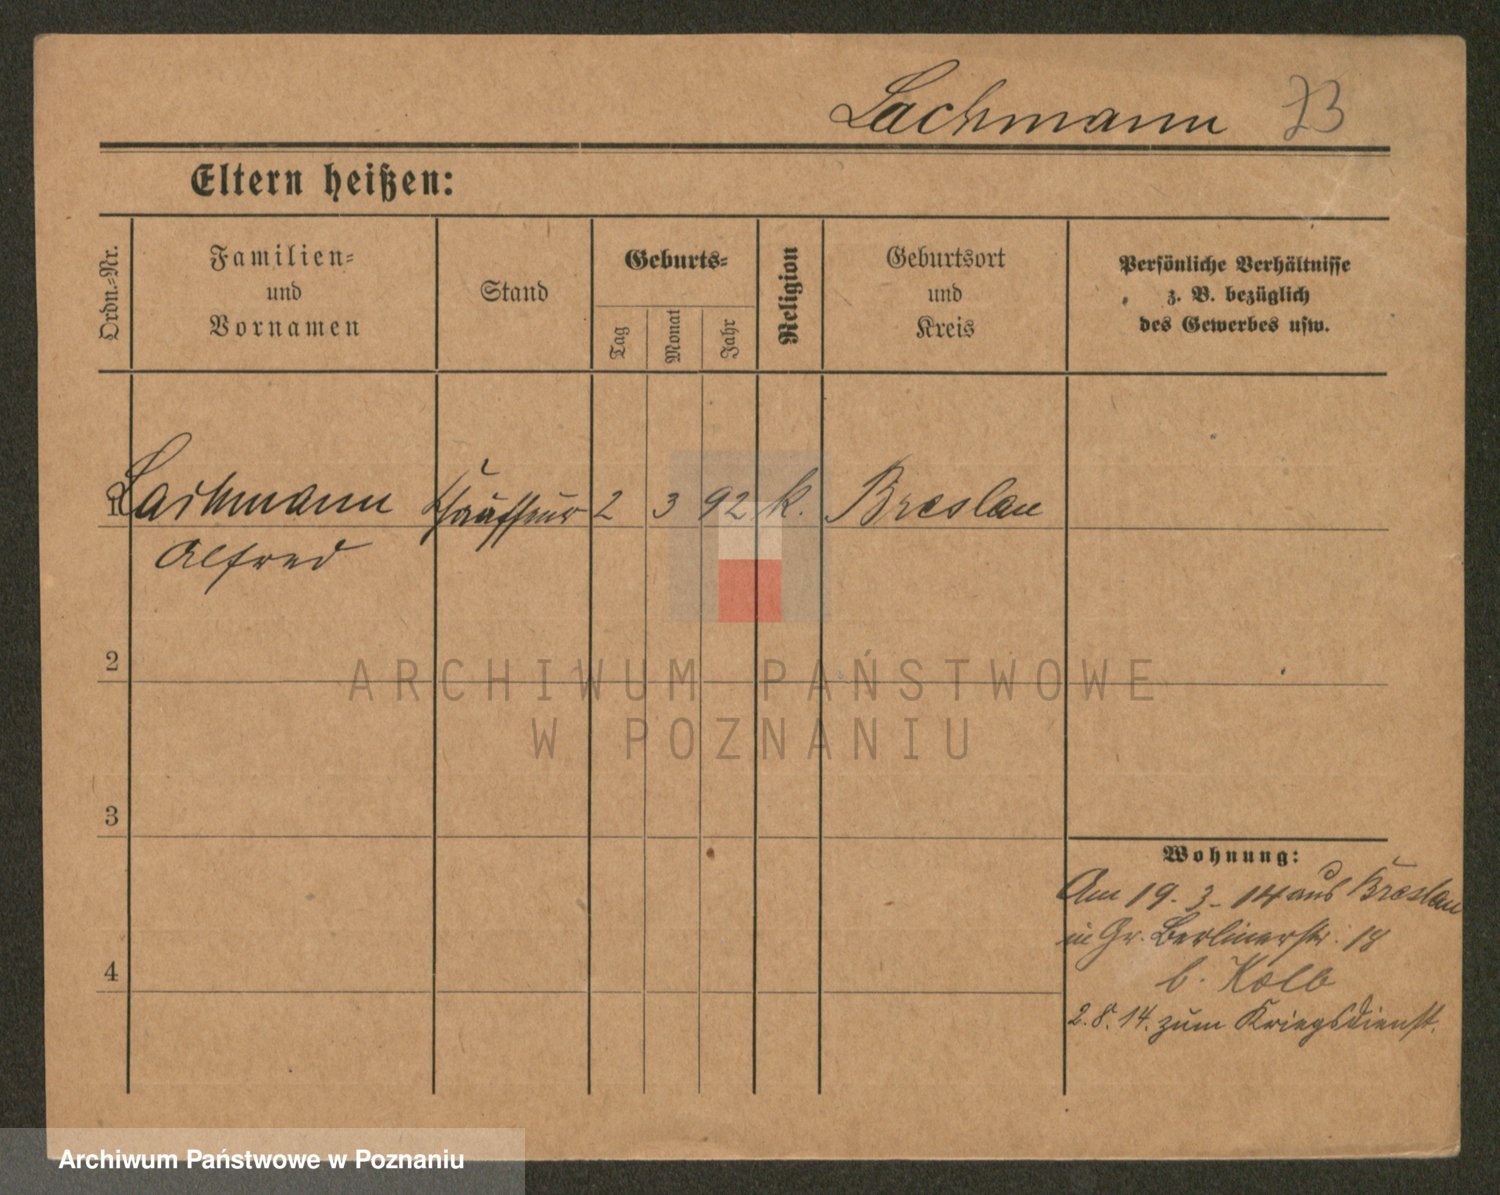 Lachmann 73
Eltern heißen:
Ordn.-Nr.
Familien-
und
Vornamen
Stand
Geburts-
Tag
Monat
Jahr
Religion
Geburtsort
und
Kreis
Persönliche Verhältnisse
z. B. bezüglich
des Gewerbes usw.
1 Lachmann Chauffeur 2 3 92 k. Breslau
Alfred
2
ARCHIWUM PAŃSTWOWE
W POZNANIU
3
Wohnung:
Am 19. 3. 14 aus Breslau
in Gr. Berlinerstr. 18
b. Kolb
4
2.8.14. zum Kriegsdienst.
Archiwum Państwowe w Poznaniu